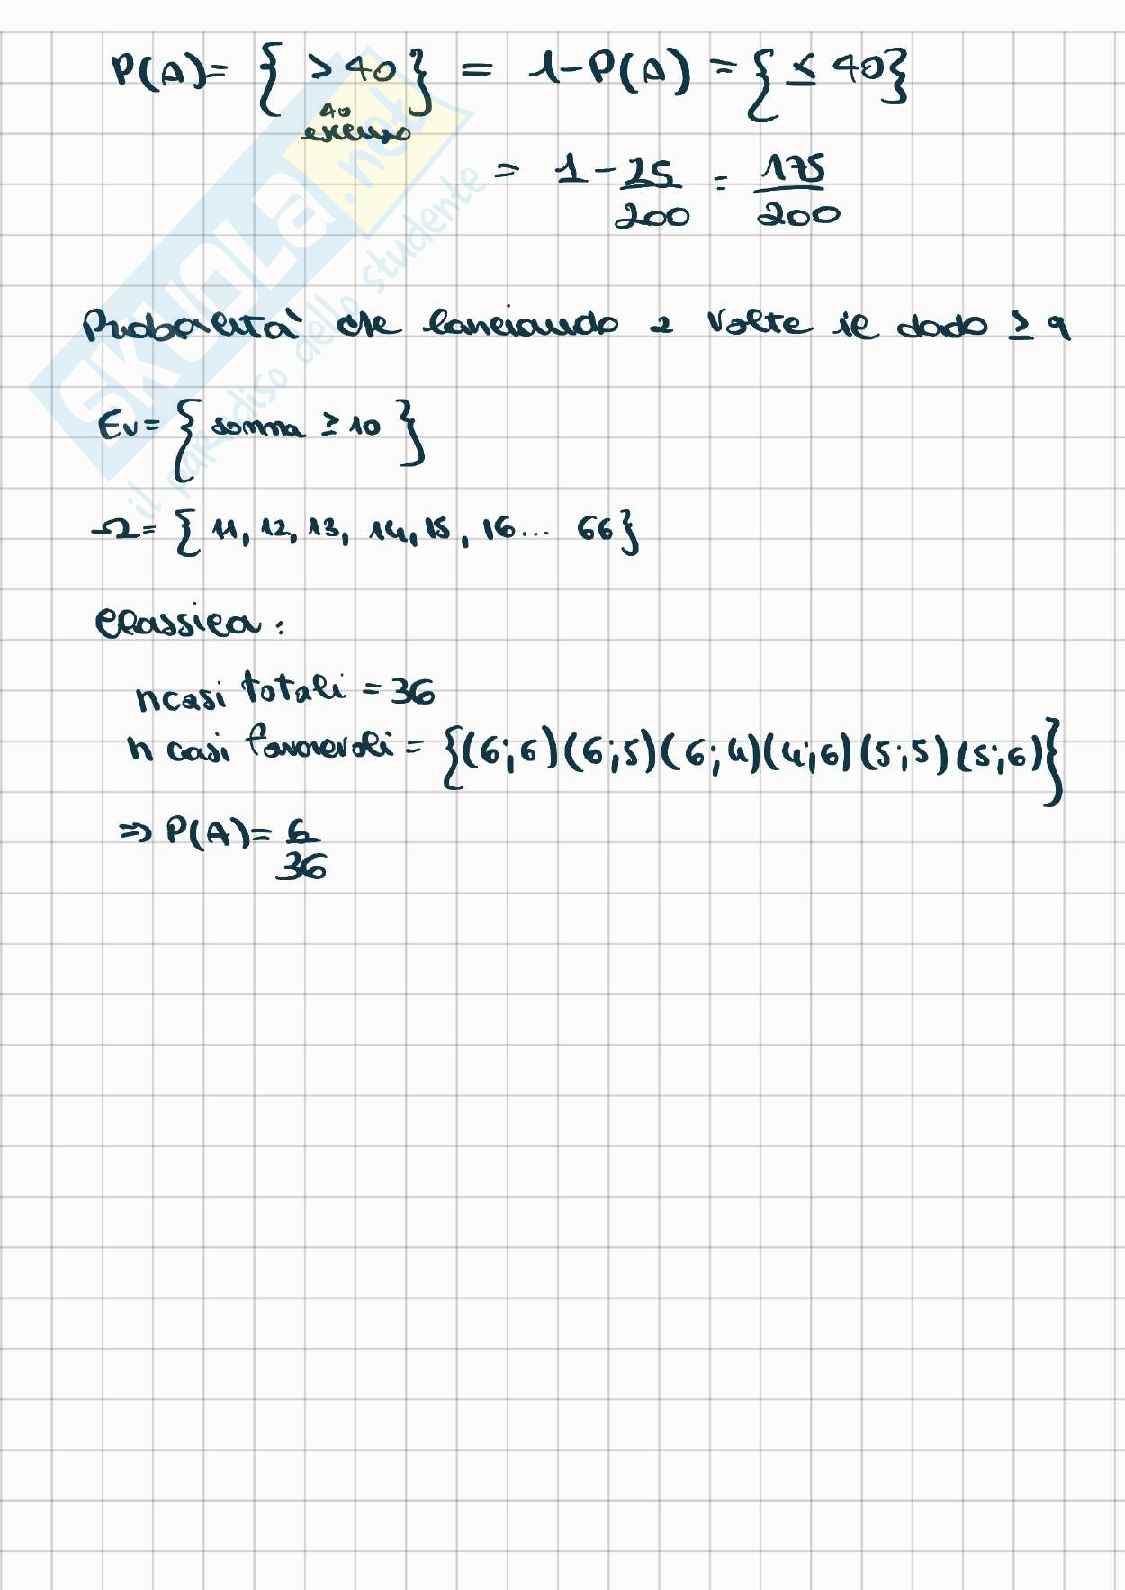 P(A)= { > 40 } = 1-P(A) = { ≤ 40}
40
escluso
= 1 - 25/200 = 175/200
Probabilità che lanciando 2 volte il dado ≥ 9
Ev = { somma ≥ 10 }
Ω = { 11, 12, 13, 14, 15, 16... 66}
Classica:
n casi totali = 36
n casi favorevoli = {(6;6)(6;5)(6;4)(4;6)(5;5)(5;6)}
⇒ P(A) = 6/36
SKUOLA.net
il paradiso dello studente